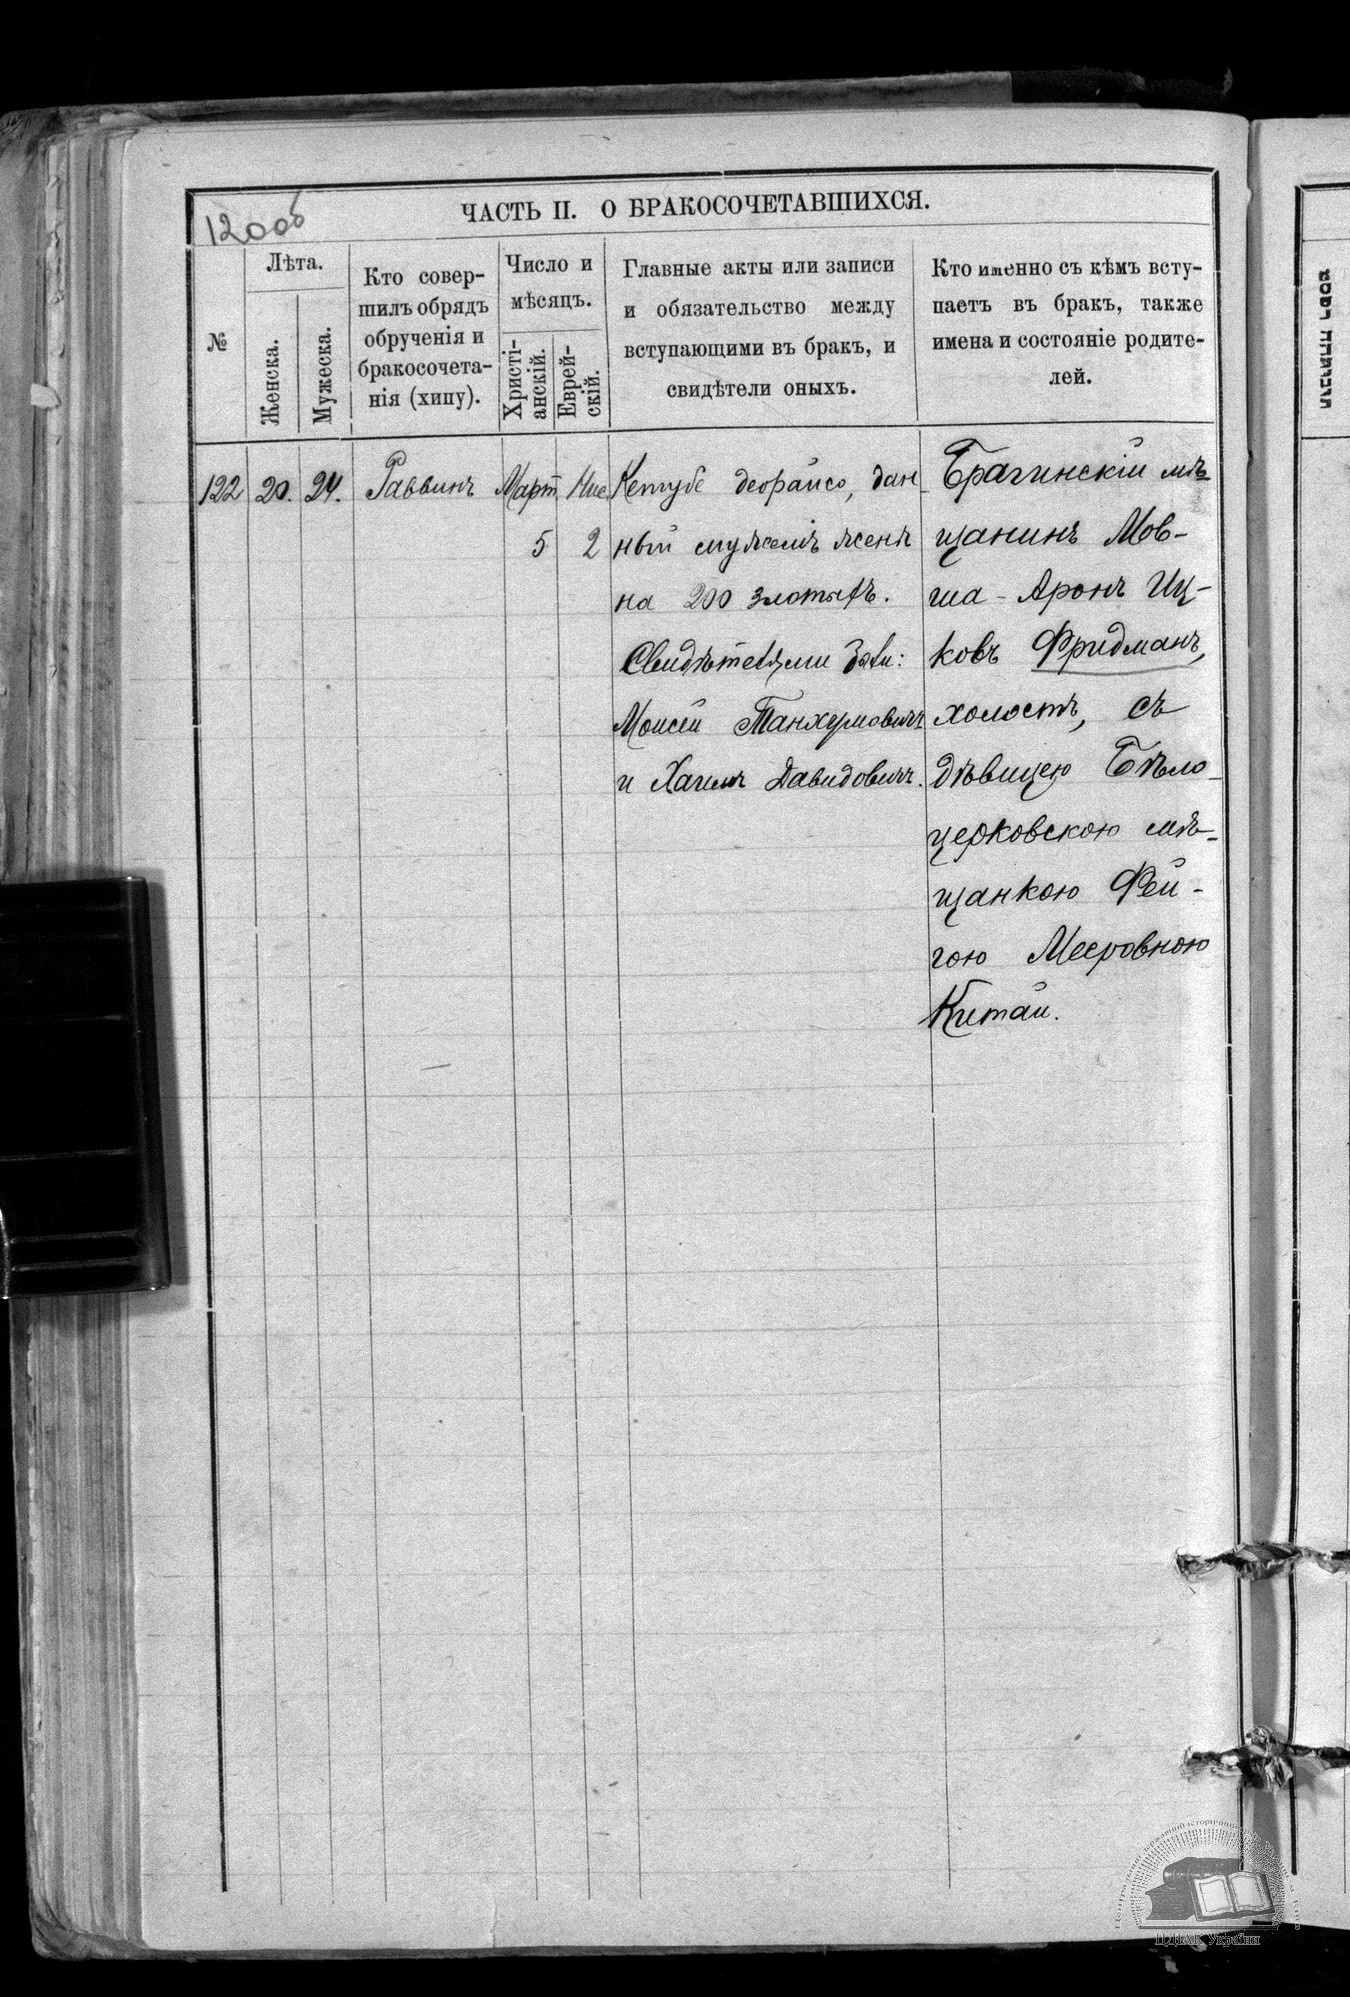 1200б
ЧАСТЬ II. О БРАКОСОЧЕТАВШИХСЯ.
№
Лѣта.
Женска.
Мужеска.
Кто совер-
шилъ обрядъ
обрученія и
бракосочета-
нія (хипу).
Число и
мѣсяцъ.
Христі-
анскій.
Еврей-
скій.
Главные акты или записи
и обязательство между
вступающими въ бракъ, и
свидѣтели оныхъ.
Кто именно съ кѣмъ всту-
паетъ въ бракъ, также
имена и состояніе родите-
лей.
122
20.
24.
Раввинъ
Март
5
Нис
2
Кетубе деорайсо, дан
ный мужемъ женѣ
на 200 злотыхъ.
Свидѣтелями были:
Моисей Танхумовичъ
и Хаимъ Давидовичъ.
Брагинскій мѣ-
щанинъ Мов-
ша-Аронъ Иц-
ковъ Фридманъ,
холостъ, съ
дѣвицею Бѣло-
церковскою мѣ-
щанкою Фей-
гою Мееровною
Китай.
ЦДІАК України